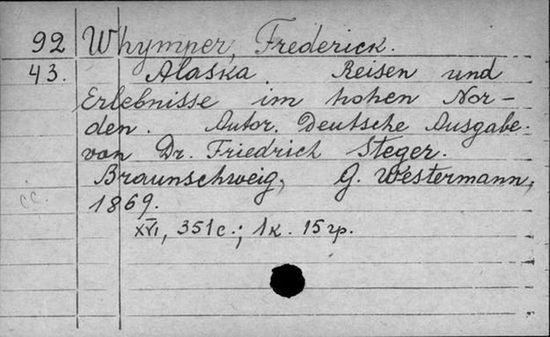 92 Whymper, Frederick.
43. Alaska. Reisen und
Erlebnisse im hohen Nor-
den. Autor. Deutsche Ausgabe.
von Dr. Friedrich Steger.
Braunschweig, G. Westermann,
cc. 1869.
XVI, 351 с.; 1к. 15 гр.